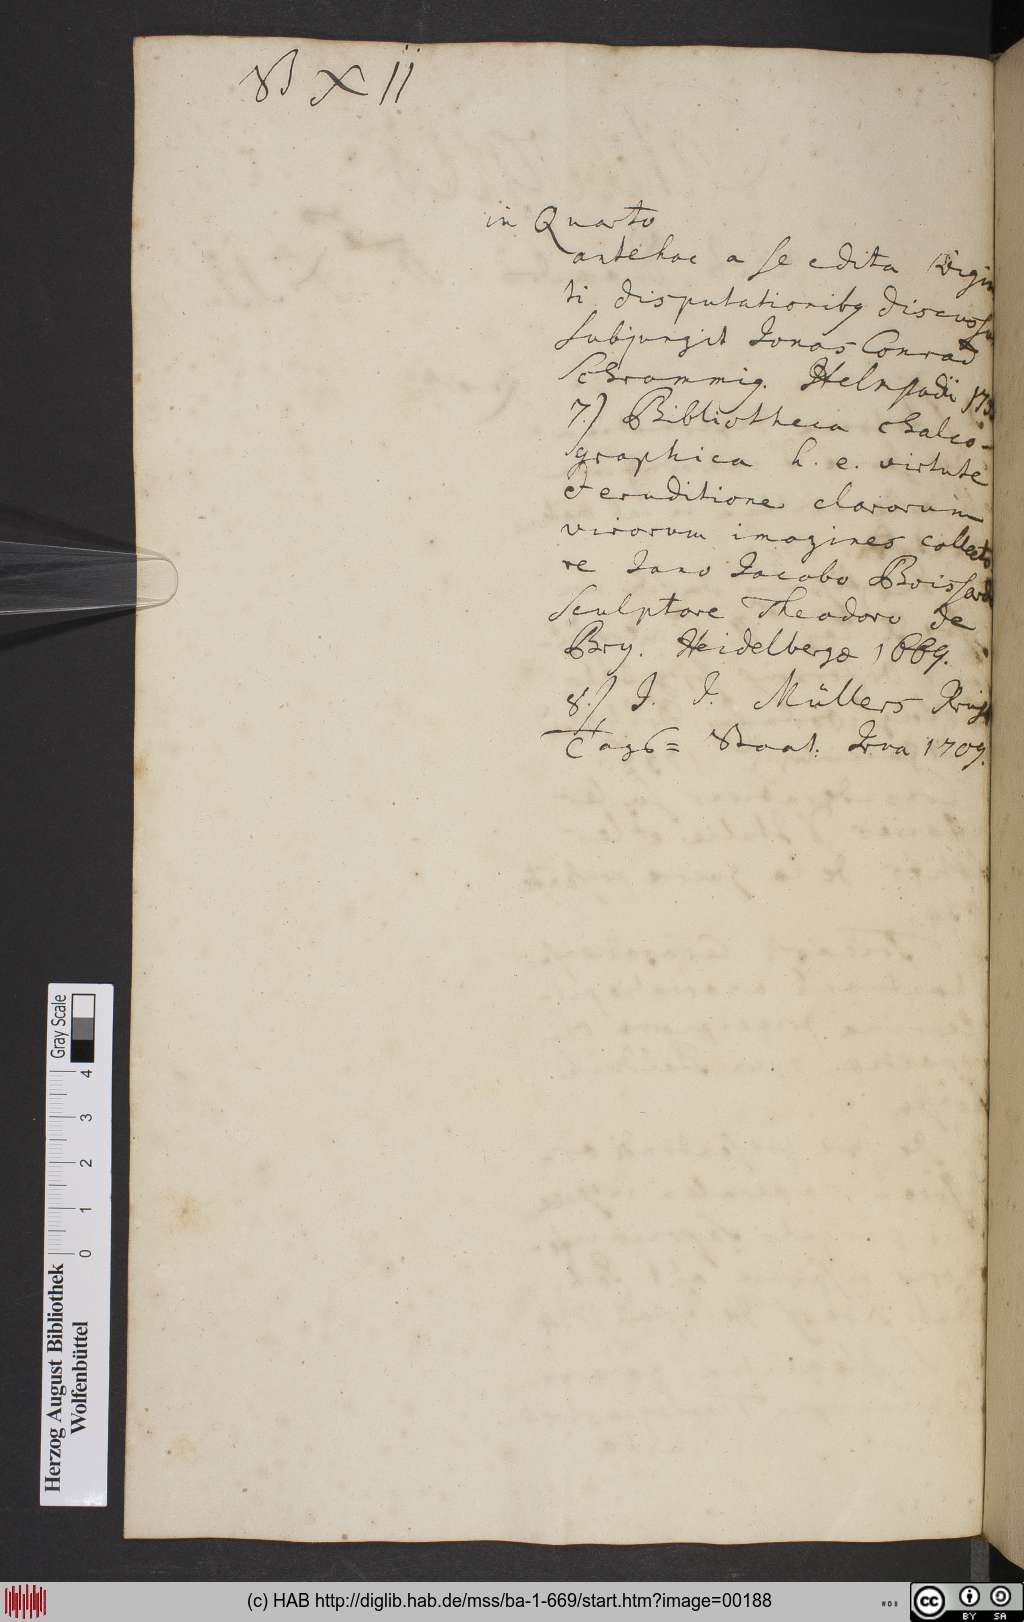 in Quarto
antehac a se edita
ti disputationibq discus
subjungit Jonas Conrad
Schrammig.
7.) Bibliotheca chalco-
graphica h. e. virtute
et eruditione clarorum
virorum imagines collecto
re Jano Jacobo Boissard
Sculptore Theodoro de
Bry. Heidelbergæ 1669.
8.) J. J. Müllers
Staat: Jena 1709.
Gray Scale
0 1 2 3 4
Herzog August Bibliothek
Wolfenbüttel
(c) HAB http://diglib.hab.de/mss/ba-1-669/start.htm?image=00188
cc BY SA